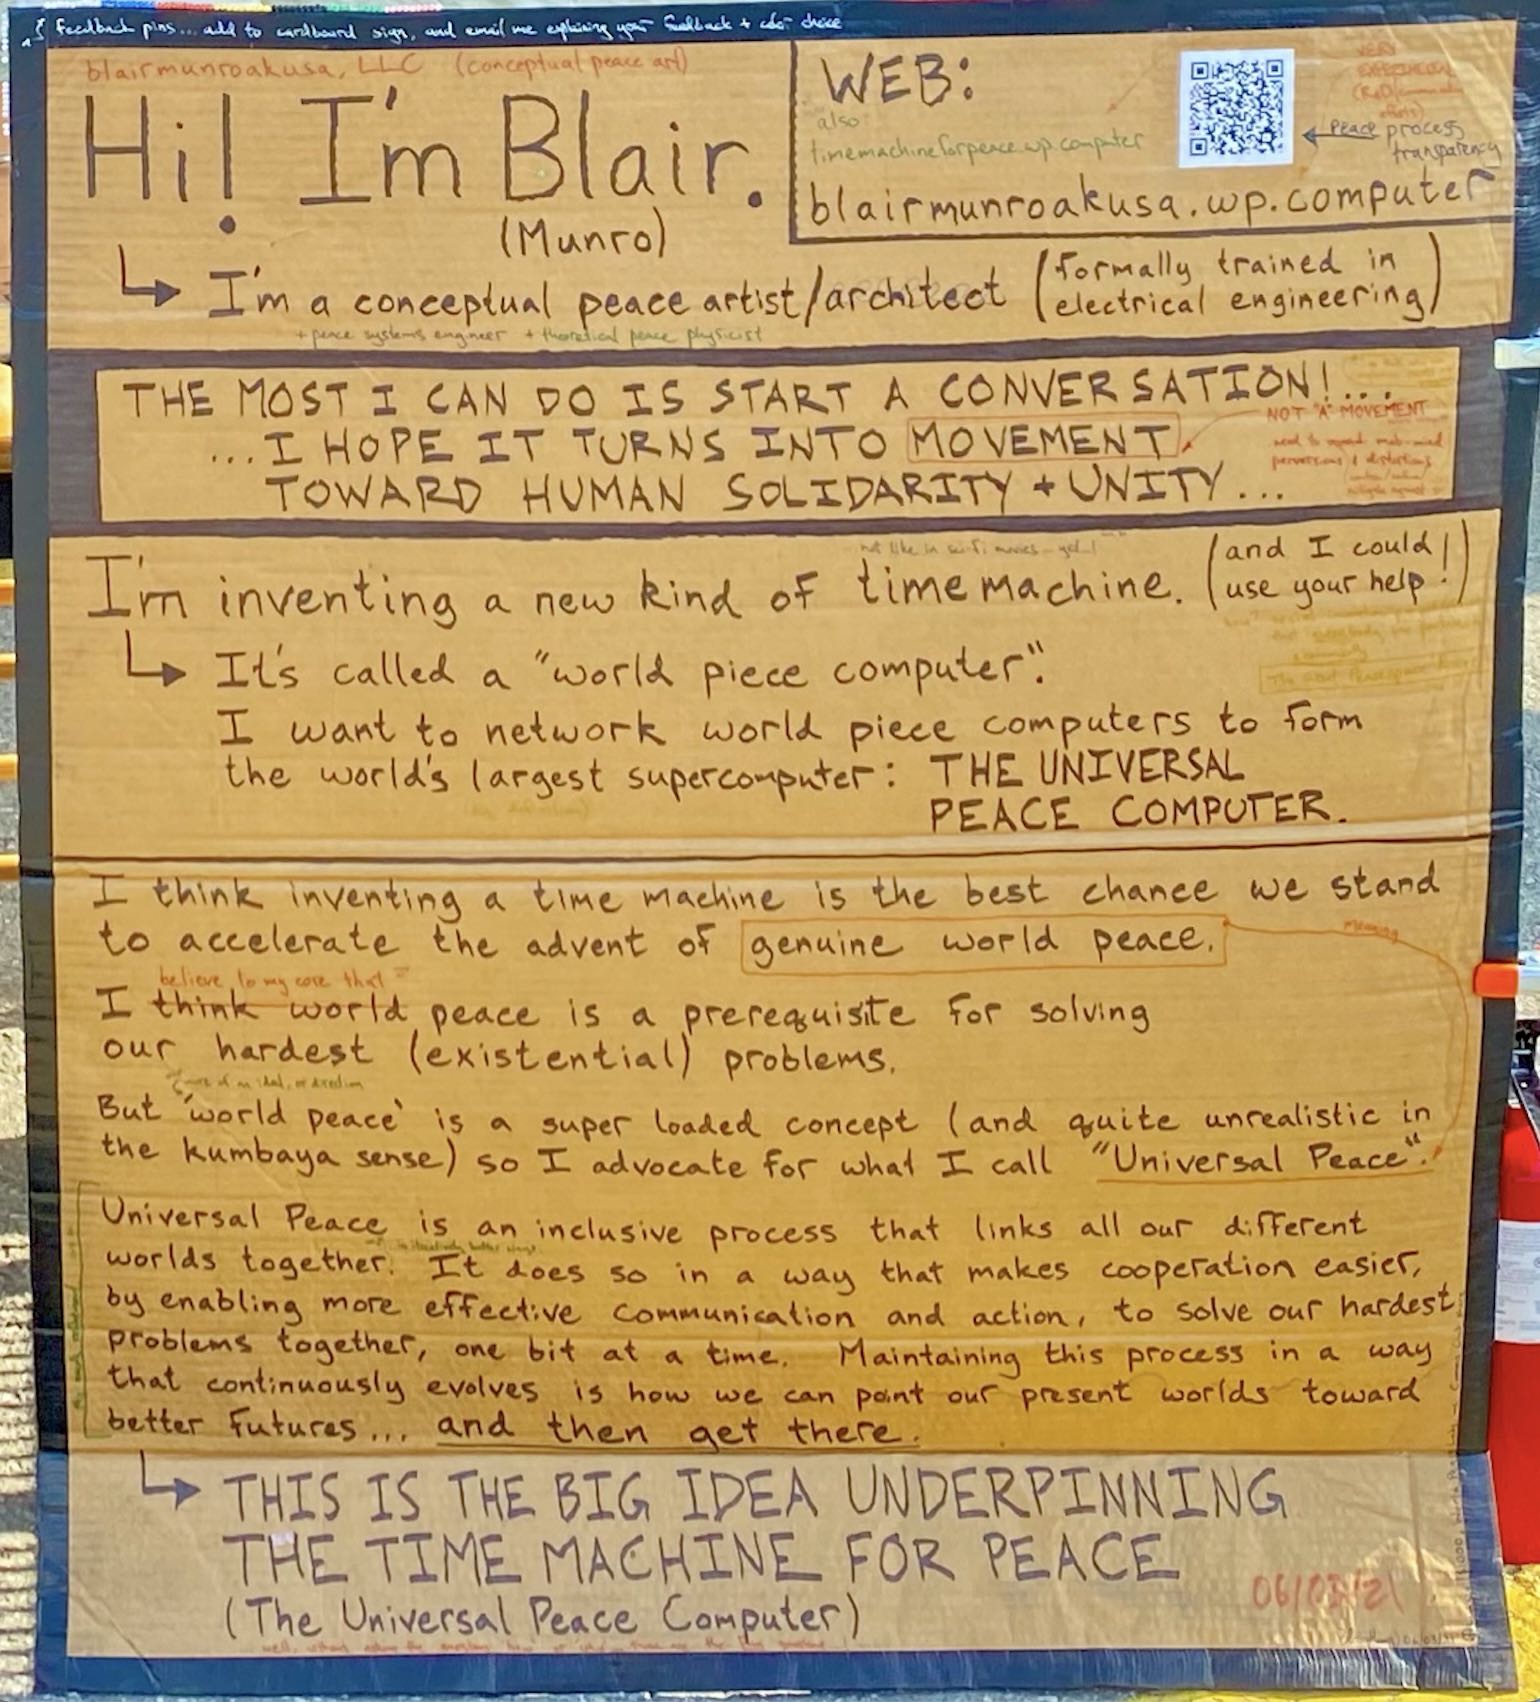 feedback pins... add to cardboard sign, and email me explaining your feedback + color choice
blairmunroakusa, LLC (conceptual peace art)
Hi! I'm Blair.
(Munro)
WEB:
also
timemachineforpeace.wp.computer
blairmunroakusa.wp.computer
VERY
EXPERIMENTAL
peace process
transparency
I'm a conceptual peace artist/architect (formally trained in
electrical engineering)
+ peace systems engineer + theoretical peace physicist
THE MOST I CAN DO IS START A CONVERSATION!...
...I HOPE IT TURNS INTO MOVEMENT
NOT "A" MOVEMENT
TOWARD HUMAN SOLIDARITY + UNITY...
not like in sci-fi movies - yet...!
I'm inventing a new kind of time machine. (and I could
use your help!)
It's called a "world piece computer".
I want to network world piece computers to form
the world's largest supercomputer: THE UNIVERSAL
PEACE COMPUTER.
I think inventing a time machine is the best chance we stand
to accelerate the advent of genuine world peace.
meaning
believe to my core that
I think world peace is a prerequisite for solving
our hardest (existential) problems.
more of an ideal, or direction
But 'world peace' is a super loaded concept (and quite unrealistic in
the kumbaya sense) so I advocate for what I call "Universal Peace".
Universal Peace is an inclusive process that links all our different
worlds together. It does so in a way that makes cooperation easier,
by enabling more effective communication and action, to solve our hardest
problems together, one bit at a time. Maintaining this process in a way
that continuously evolves is how we can point our present worlds toward
better futures... and then get there.
THIS IS THE BIG IDEA UNDERPINNING
THE TIME MACHINE FOR PEACE
(The Universal Peace Computer)
06/03/21